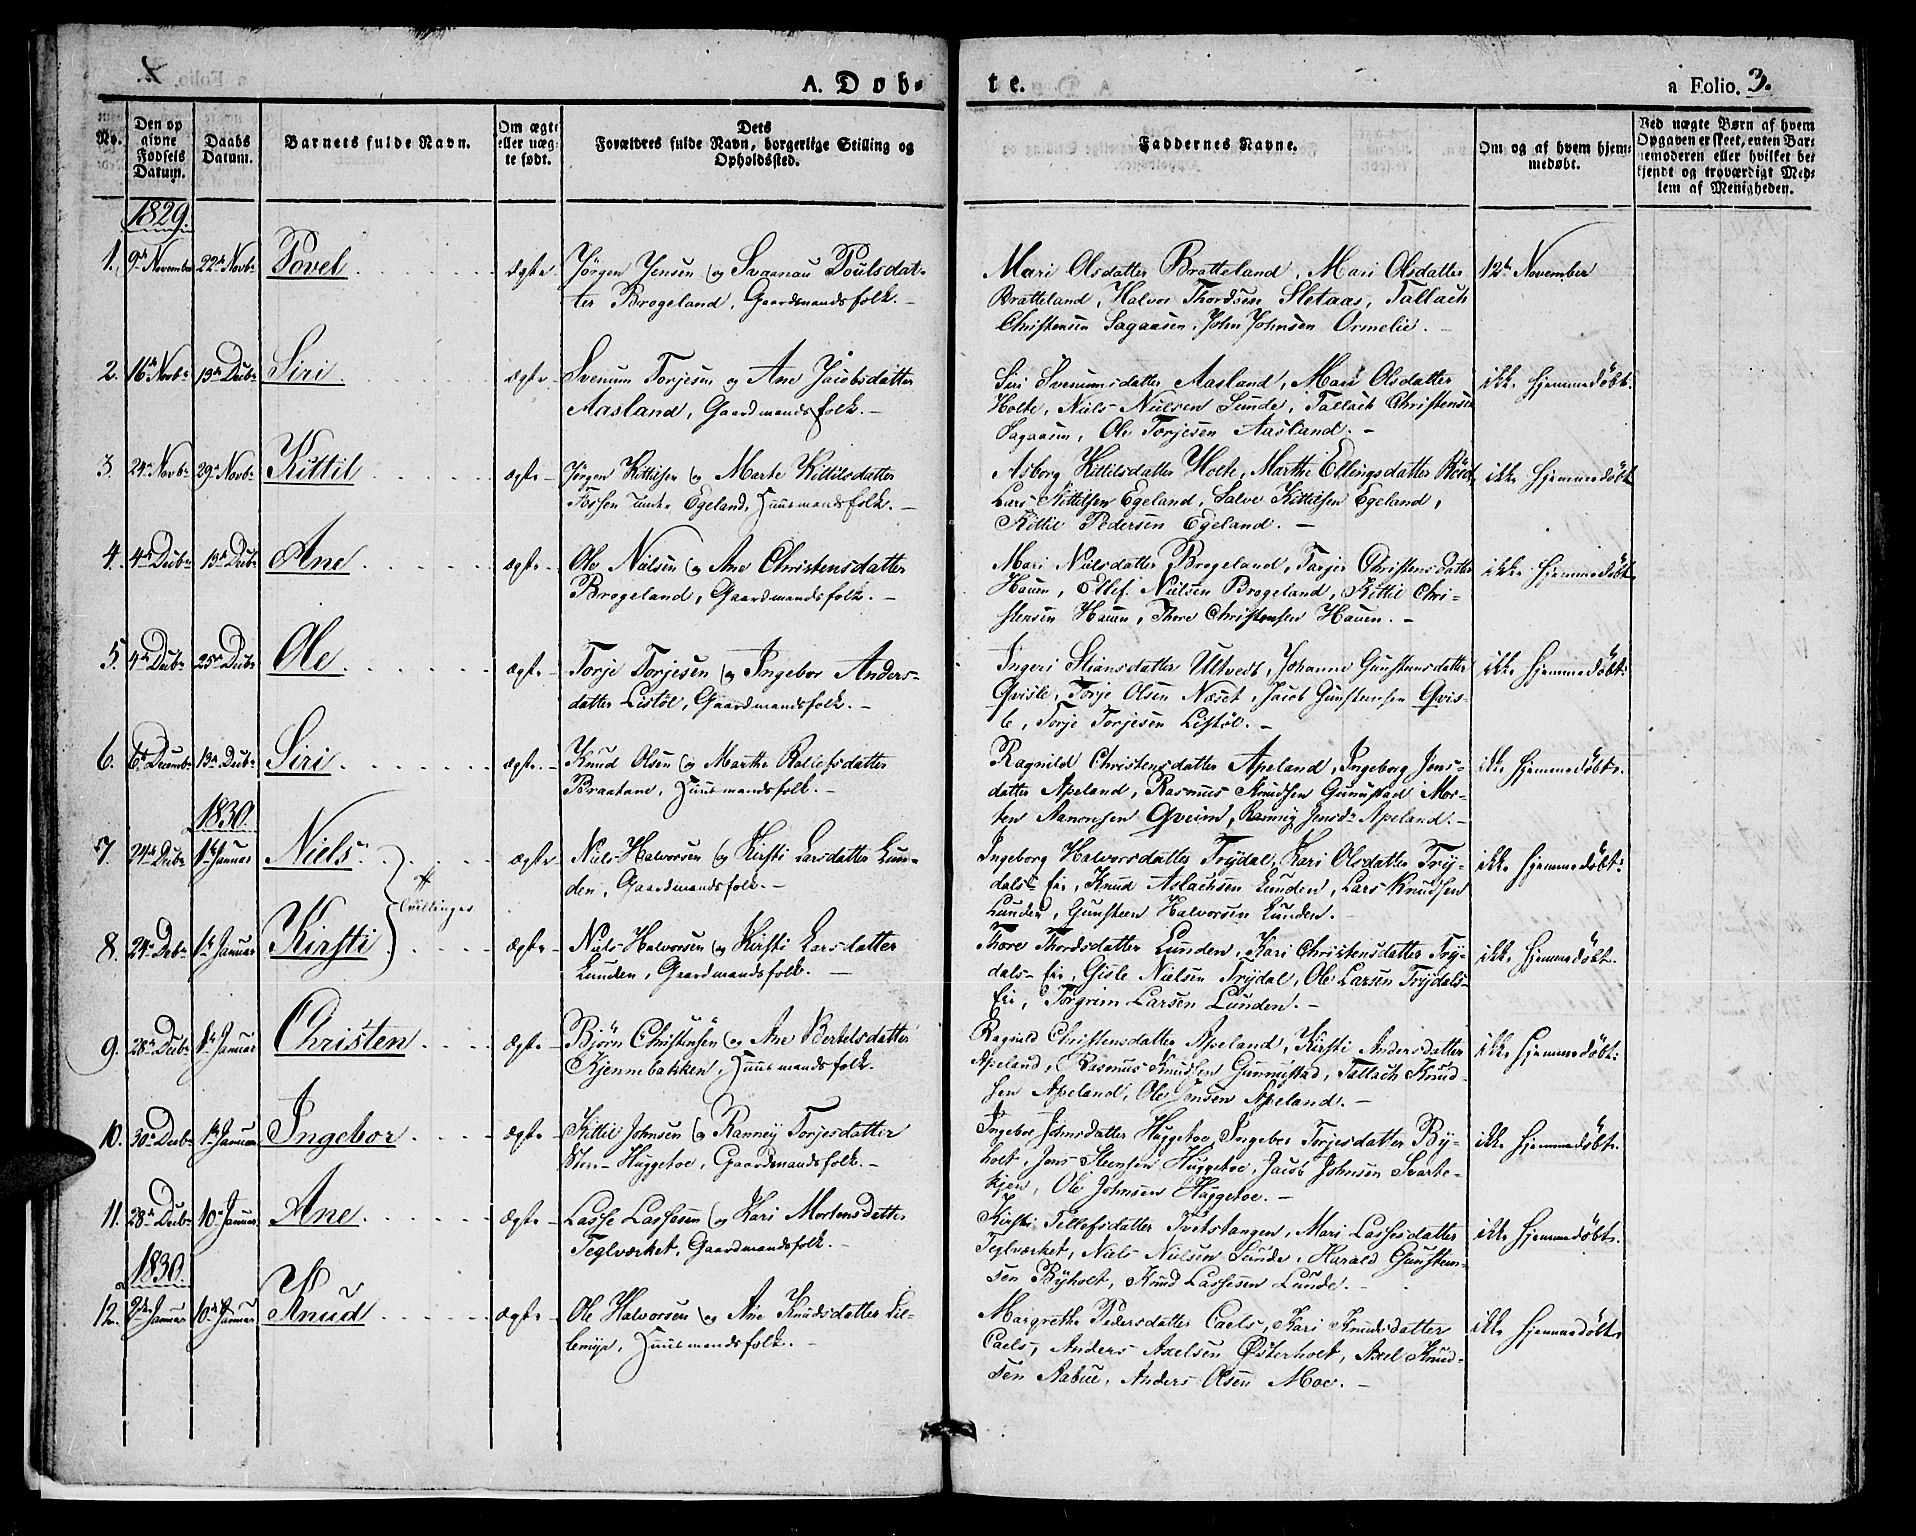 A. Døb-
te.
a Folio. 3.
No.
Den op
givne
Fødsels
Datum.
Daabs
Datum.
Barnets fulde Navn.
Om ægte
eller uæg
te født.
Dets
Forældres fulde Navn, borgerlige Stilling og
Opholdssted.
Faddernes Navne.
Om og af hvem hjem
medøbt.
Ved uægte Børn af hvem
Opgaven er skeet, enten Bar-
nemoderen eller hvilket be-
kjendt og troværdigt Med-
lem af Menigheden.
1829.
1. 9de November 22de Novbr Povel ægte Jørgen Jensen og Svaanau Poulsdat-
ter Brøgeland, Gaardmandsfolk. -
Mari Olsdatter Bratteland, Mari Olsdatter
Bratteland, Halvor Thordsen Sletaas, Tallach
Christensen Sagaasen, John Johnsen Ormelie. -
12te November
2. 16de Novbr 13de Decbr Siri ægte Svenum Torjesen og Ane Jacobsdatter
Aasland, Gaardmandsfolk. -
Siri Svenumsdatter Aasland, Mari Olsdatter
Holte, Niels Nielsen Sunde, Tallach Christensen
Sagaasen, Ole Torjesen Aasland. -
ikke hjemmedøbt.
3. 24de Novbr 29de Novbr Kittil ægte Jørgen Kittilsen og Marte Kittilsdatter
Forsen under Egeland, Huusmandsfolk. -
Asborg Kittilsdatter Holte, Marthe Ellingsdatter Röed,
Lars Kittilsen Egeland, Salve Kittilsen Egeland,
Kittil Pedersen Egeland. -
ikke hjemmedøbt
4. 4de Decbr 13de Decbr Ane ægte Ole Nielsen og Ane Christensdatter
Brøgeland, Gaardmandsfolk. -
Mari Nielsdatter Brøgeland, Torjer Christensdatter
Hauen, Ellef Nielsen Brøgeland, Kittil Chri-
stensen Hauen, Thore Christensen Hauen. -
ikke hjemmedøbt
5. 4de Decbr 25de Decbr Ole ægte Torje Torjesen og Ingebor Anders-
datter Listöl, Gaardmandsfolk. -
Ingeri Stiansdatter Ulltvedt, Johanne Gunstensdatter
Qvisle, Torje Olsen Næset, Jacob Gunstensen Qvis-
le, Torje Torjesen Listöl. -
ikke hjemmedøbt.
6. 6te Decembr 13de Decbr Siri ægte Knud Olsen og Marthe Roliefsdatter
Braatane, Huusmandsfolk. -
Ragnild Christensdatter Apeland, Ingeborg Jens-
datter Apeland, Rasmus Knudsen Gunnestad, Mor-
ten Aanonsen Qveim, Ranney Jensdr Apeland. -
ikke hjemmedøbt.
1830.
7. 24de Decbr 1ste Januar Niels Tvillinger ægte Niels Halvorsen og Kirsti Larsdatter Lun-
den, Gaardmandsfolk. -
Ingeborg Halvorsdatter Trydal, Kari Olsdatter Try-
dals-Eie, Knud Aslachsen Lunden, Lars Knudsen
Lunden, Gunsteen Halvorsen Lunden. -
ikke hjemmedøbt.
8. 24de Decbr 1ste Januar Kirsti ægte Niels Halvorsen og Kirsti Larsdatter
Lunden, Gaardmandsfolk. -
Thore Thordsdatter Lunden, Kari Christensdatter Try-
dals-Eie, Gisle Nielsen Trydal, Ole Larsen Trydals-
Eie, Torgrim Larsen Lunden. -
ikke hjemmedøbt.
9. 28de Decbr 1ste Januar Christen ægte Björn Christensen og Ane Bertelsdatter
Kjennebakken, Huusmandsfolk.
Ragnild Christensdatter Apeland, Kirsti Andersdatter
Apeland, Rasmus Knudsen Gunnestad, Tallach Knud-
sen Apeland, Ole Jensen Apeland. -
ikke hjemmedøbt.
10. 30te Decbr 1ste Januar Ingebor ægte Kittil Johnsen og Ranney Torjesdatter
Huggetoe, Gaardmandsfolk. -
Ingebor Johnsdatter Huggetoe, Ingebor Torjesdatter By-
holt, Jens Steensen Huggetoe, Jacob Johnsen Svarte-
kjen, Ole Johnsen Huggetoe. -
ikke hjemmedøbt.
11. 28de Decbr 10de Januar Ane ægte Lasse Lassesen og Kari Mortensdatter
Teglværket, Gaardmandsfolk. -
Kirsti Tellefsdatter Tvetstangen, Mari Lassesdatter
Teglværket, Niels Nielsen Sunde, Harald Gunsten-
sen Byholt, Knud Lassesen Lunde. -
ikke hjemmedøbt.
1830.
12. 2den Januar 10de Januar Knud ægte Ole Halvorsen og Ane Knudsdatter Lil-
lemyr, Huusmandsfolk. -
Margrethe Pedersdatter Caels, Kari Knudsdatter
Caels, Anders Axelsen Østerholt, Axel Knud-
sen Aabue, Anders Olsen Moe. -
ikke hjemmedøbt